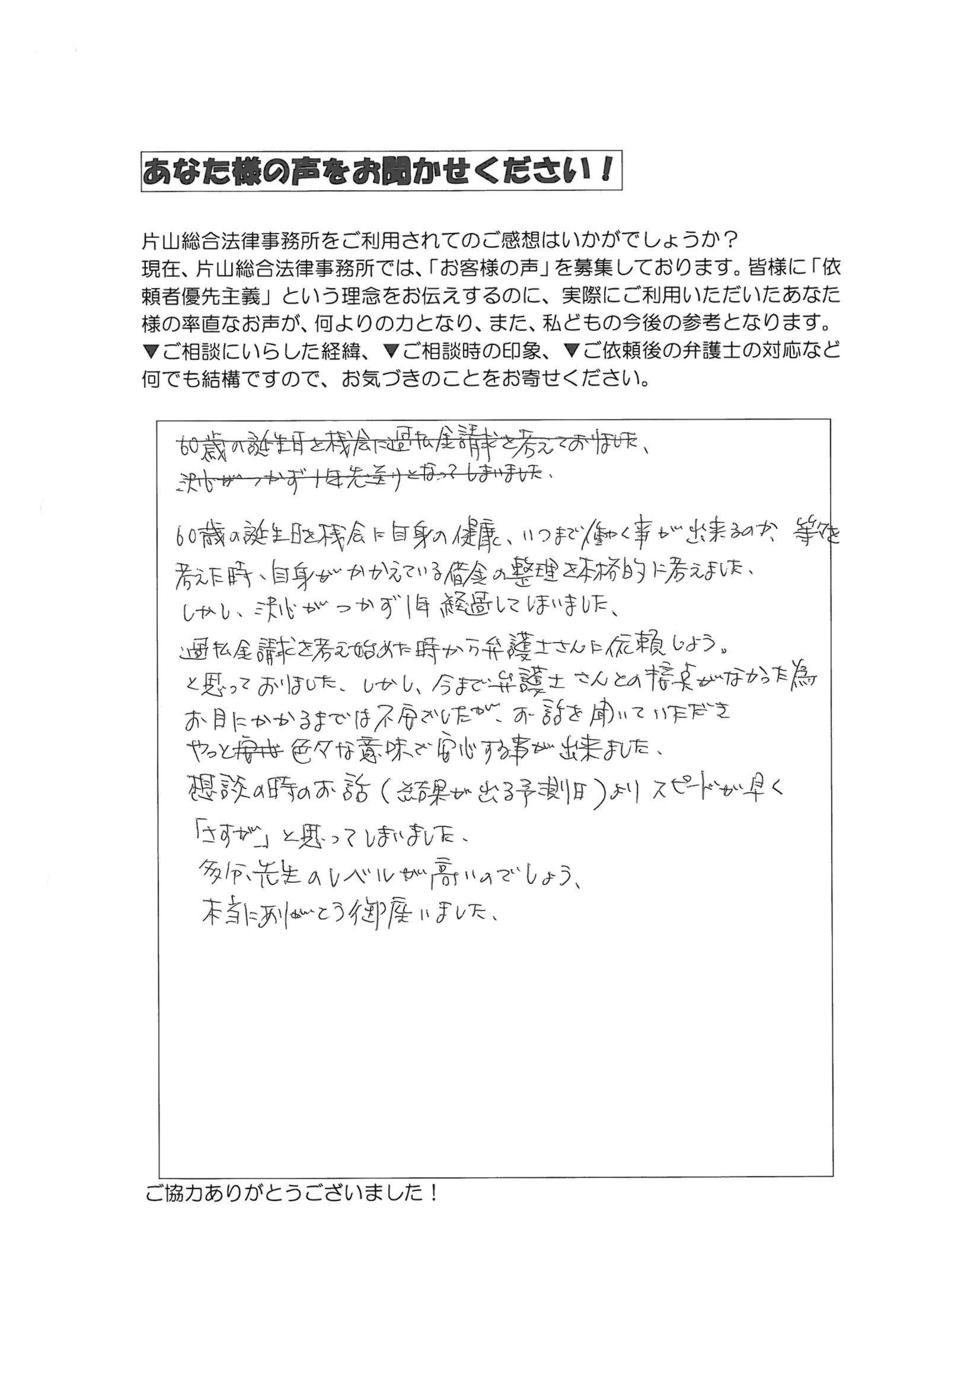 あなた様の声をお聞かせください！
片山総合法律事務所をご利用されてのご感想はいかがでしょうか？
現在、片山総合法律事務所では、「お客様の声」を募集しております。皆様に「依
頼者優先主義」という理念をお伝えするのに、実際にご利用いただいたあなた
様の率直なお声が、何よりの力となり、また、私どもの今後の参考となります。
▼ご相談にいらした経緯、▼ご相談時の印象、▼ご依頼後の弁護士の対応など
何でも結構ですので、お気づきのことをお寄せください。
60歳の誕生日を機会に過払金請求を考えておりました、
決心がつかず1年先送りとなってしまいました、
60歳の誕生日を機会に自身の健康、いつまで働く事が出来るのか、等々を
考えた時、自身がかかえている借金の整理を本格的に考えました、
しかし、決心がつかず1年経過してしまいました、
過払金請求を考え始めた時から弁護士さんに依頼しよう。
と思っておりました、しかし、今まで弁護士さんとの接点がなかった為
お目にかかるまでは不安でしたが、お話を聞いていただき
やっと安心 色々な意味で安心する事が出来ました、
想談の時のお話（結果が出る予測日）よりスピードが早く
「さすが」と思ってしまいました、
多分、先生のレベルが高いのでしょう、
本当にありがとう御座いました、
ご協力ありがとうございました！